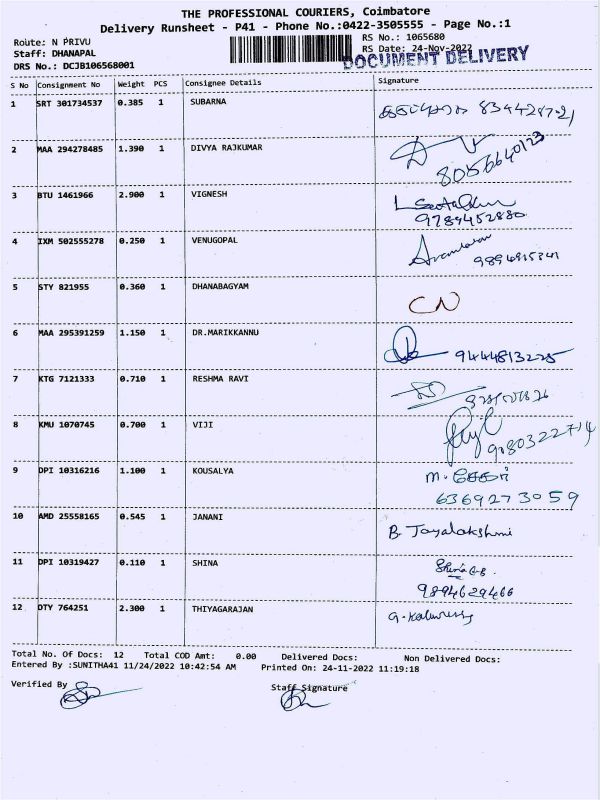 THE PROFESSIONAL COURIERS, Coimbatore
Delivery Runsheet - P41 - Phone No.:0422-3505555 - Page No.:1
Route: N PRIVU RS No.: 1065680
Staff: DHANAPAL RS Date: 24-Nov-2022
DRS No.: DCJB106568001 DOCUMENT DELIVERY
S No Consignment No Weight PCS Consignee Details Signature
1 SRT 301734537 0.385 1 SUBARNA
2 MAA 294278485 1.390 1 DIVYA RAJKUMAR 8056640123
3 BTU 1461966 2.900 1 VIGNESH 9789452880
4 IXM 502555278 0.250 1 VENUGOPAL
5 STY 821955 0.360 1 DHANABAGYAM CN
6 MAA 295391259 1.150 1 DR.MARIKKANNU 9444813225
7 KTG 7121333 0.710 1 RESHMA RAVI
8 KMU 1070745 0.700 1 VIJI 9080322714
9 DPI 10316216 1.100 1 KOUSALYA
6369273059
10 AMD 25558165 0.545 1 JANANI B. Jayalakshmi
11 DPI 10319427 0.110 1 SHINA Shina
9894629466
12 DTY 764251 2.300 1 THIYAGARAJAN
Total No. Of Docs: 12 Total COD Amt: 0.00 Delivered Docs: Non Delivered Docs:
Entered By :SUNITHA41 11/24/2022 10:42:54 AM Printed On: 24-11-2022 11:19:18
Verified By Staff Signature